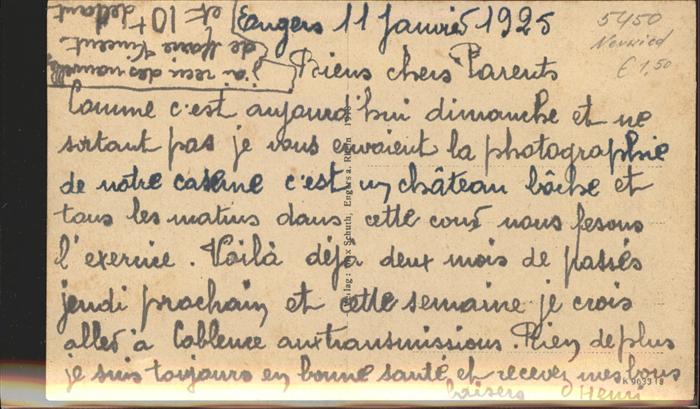 Engers 11 Janvier 1925
Biens chers Parents
Comme c'est aujourd'hui dimanche et ne
sortant pas je vous envoient la photographie
de notre caserne c'est un château bôche et
tous les matins dans cette cour nous fesons
l'exercice. Voilà déja deux mois de passés
jeudi prochain et cette semaine je crois
aller à Coblence aux transmissions. Rien de plus
je suis toujours en bonne santé et recevez mes bons
baisers Henri
j'ai recu des nouvelles
de Marie Vincent
et 10 + dedant
5450
Neuwied
€ 1,50
Verlag: Max Schuth, Engers a. Rhein
K 90331 8